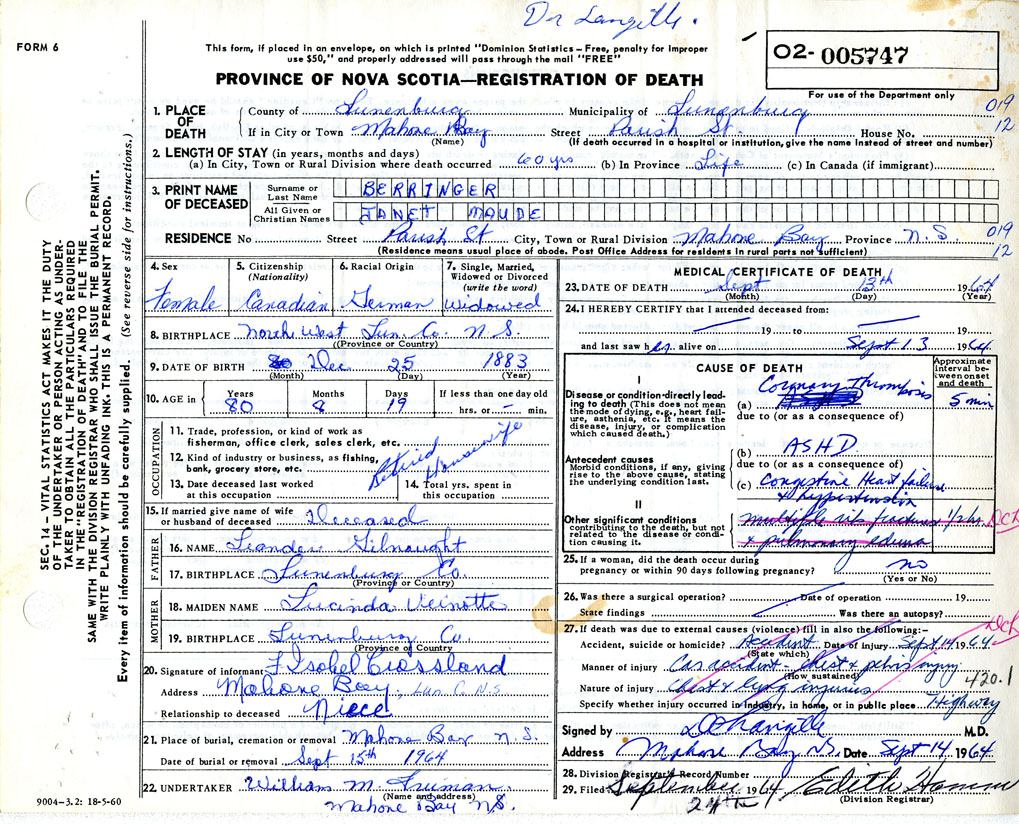 Dr Langille.
FORM 6
This form, if placed in an envelope, on which is printed "Dominion Statistics – Free, penalty for improper
use $50," and properly addressed will pass through the mail "FREE"
PROVINCE OF NOVA SCOTIA—REGISTRATION OF DEATH
02- 005747
For use of the Department only
SEC. 14 – VITAL STATISTICS ACT MAKES IT THE DUTY
OF THE UNDERTAKER OR PERSON ACTING AS UNDER-
TAKER TO OBTAIN ALL THE PARTICULARS REQUIRED
IN THE "REGISTRATION OF DEATH" AND TO FILE THE
SAME WITH THE DIVISION REGISTRAR WHO SHALL ISSUE THE BURIAL PERMIT.
WRITE PLAINLY WITH UNFADING INK. THIS IS A PERMANENT RECORD.
Every item of information should be carefully supplied. (See reverse side for instructions.)
1. PLACE OF DEATH
County of Lunenburg Municipality of Lunenburg 019
If in City or Town Mahone Bay Street Parish St. House No. 12
(Name) (If death occurred in a hospital or institution, give the name instead of street and number)
2. LENGTH OF STAY (in years, months and days)
(a) In City, Town or Rural Division where death occurred 60 yrs (b) In Province Life (c) In Canada (if immigrant)
3. PRINT NAME OF DECEASED
Surname or Last Name BERRINGER
All Given or Christian Names JANET MAUDE
RESIDENCE No. Street Parish St City, Town or Rural Division Mahone Bay Province N.S. 019
(Residence means usual place of abode. Post Office Address for residents in rural parts not sufficient) 12
4. Sex 5. Citizenship (Nationality) 6. Racial Origin 7. Single, Married, Widowed or Divorced (write the word)
Female Canadian German Widowed
8. BIRTHPLACE North West Lun. Co. N.S.
(Province or Country)
9. DATE OF BIRTH Dec 25 1883
(Month) (Day) (Year)
10. AGE in Years Months Days If less than one day old
80 8 19 hrs. or – min.
OCCUPATION
11. Trade, profession, or kind of work as
fisherman, office clerk, sales clerk, etc.
12. Kind of industry or business, as fishing,
bank, grocery store, etc.
Retired Housewife
13. Date deceased last worked
at this occupation
14. Total yrs. spent in
this occupation
15. If married give name of wife
or husband of deceased Deceased
FATHER
16. NAME Leander Gilnaught
17. BIRTHPLACE Lunenburg Co.
(Province or Country)
MOTHER
18. MAIDEN NAME Lucinda Veinotte
19. BIRTHPLACE Lunenburg Co.
(Province or Country)
20. Signature of informant F Isobel Crossland
Address Mahone Bay, Lun. C. N.S
Relationship to deceased Niece
21. Place of burial, cremation or removal Mahone Bay N.S.
Date of burial or removal Sept 15th 1964
22. UNDERTAKER William M. Truiman
(Name and address)
Mahone Bay N.S.
9004–3.2: 18-5-60
MEDICAL CERTIFICATE OF DEATH
23. DATE OF DEATH Sept 13th 1964
(Month) (Day) (Year)
24. I HEREBY CERTIFY that I attended deceased from:
19 to 19
and last saw her alive on Sept 13 1964
CAUSE OF DEATH
Approximate interval between onset and death
I
Disease or condition directly lead-
ing to death (This does not mean
the mode of dying, e.g., heart fail-
ure, asthenia, etc. It means the
disease, injury, or complication
which caused death.)
(a) Coronary Thrombosis 5 min
due to (or as a consequence of)
(b) ASHD.
due to (or as a consequence of)
Antecedent causes
Morbid conditions, if any, giving
rise to the above cause, stating
the underlying condition last.
(c) Congestive Heart failure
& hypertension
II
Other significant conditions
contributing to the death, but not
related to the disease or condi-
tion causing it.
multiple rib fractures 1/2 hr.
& pulmonary edema
25. If a woman, did the death occur during
pregnancy or within 90 days following pregnancy? no
(Yes or No)
26. Was there a surgical operation? Date of operation 19
State findings Was there an autopsy?
27. If death was due to external causes (violence) fill in also the following:–
Accident, suicide or homicide? Accident Date of injury Sept 14 1964
(State which)
Manner of injury Car accident - chest & pelvis injury
(How sustained)
420.1
Nature of injury Chest & lung injuries
Specify whether injury occurred in Industry, in home, or in public place Highway
Signed by Langille M.D.
Address Mahone Bay N.S. Date Sept 14 1964
28. Division Registrar's Record Number
29. Filed September 24th 1964 Edith
(Division Registrar)